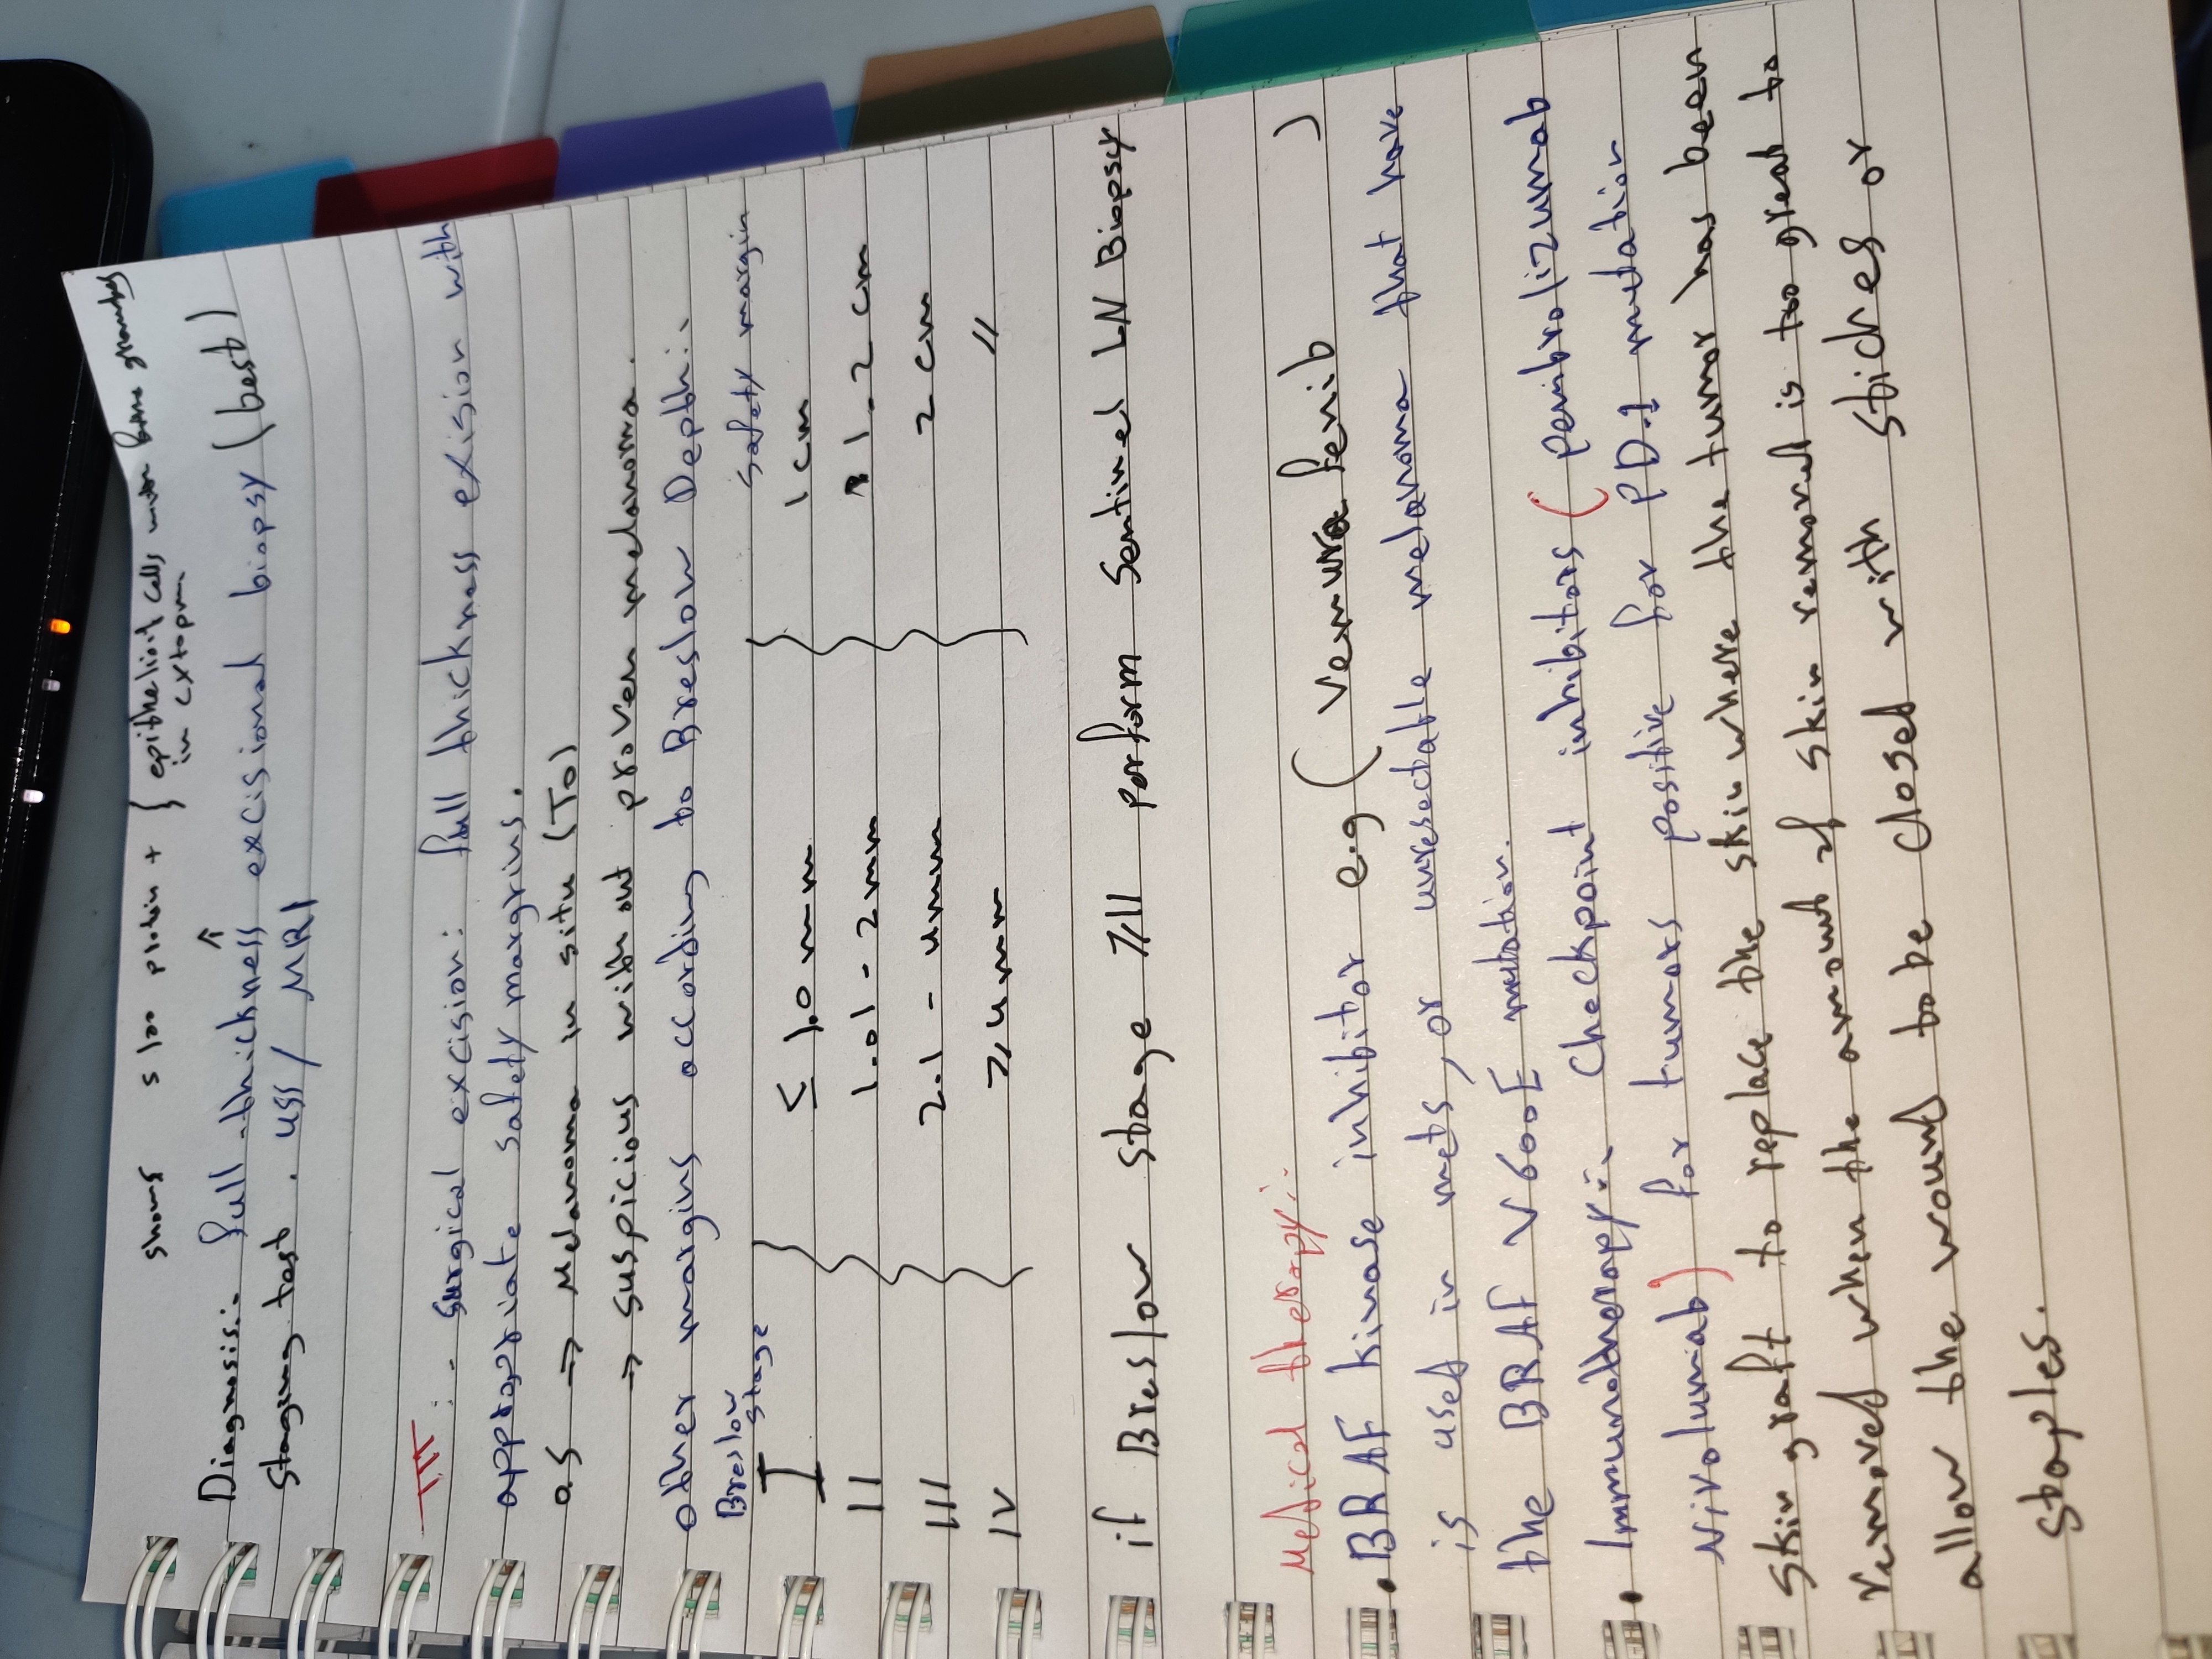 shows s100 protein + { epithelioid cells with fine granules
in cytopm
Diagnosis:- full-thickness excisional biopsy (best)
Staging test. USS/MRI
TTT :- surgical excision: full thickness exision with
appropriate safety margrins.
0.5 → Melanoma in situ (To)
→ suspicious with out proven melanoma.
other margins according to Breslow Depth:.
Breslow stage safety margin
I ≤ 1.0 mm 1 cm
II 1.01 - 2mm 1-2 cm
III 2.1 - 4mm 2 cm
IV ≥,4mm //
if Breslow stage ≥II perform Sentinel LN Biopsy
Medical therapy:-
• BRAF kinase inhibitor e.g ( Vemurafenib )
is used in mets, or unresectable melanoma that have
the BRAF V600E mutation.
• Immunotherapy:- Checkpoint inhibitors ( pembrolizumab
Nivolumab) for tumors positive for PD.1 mutation
Skin graft to replace the skin where the tumor has been
removed when the amount of skin removed is too great to
allow the wound to be closed with stiches or
staples.